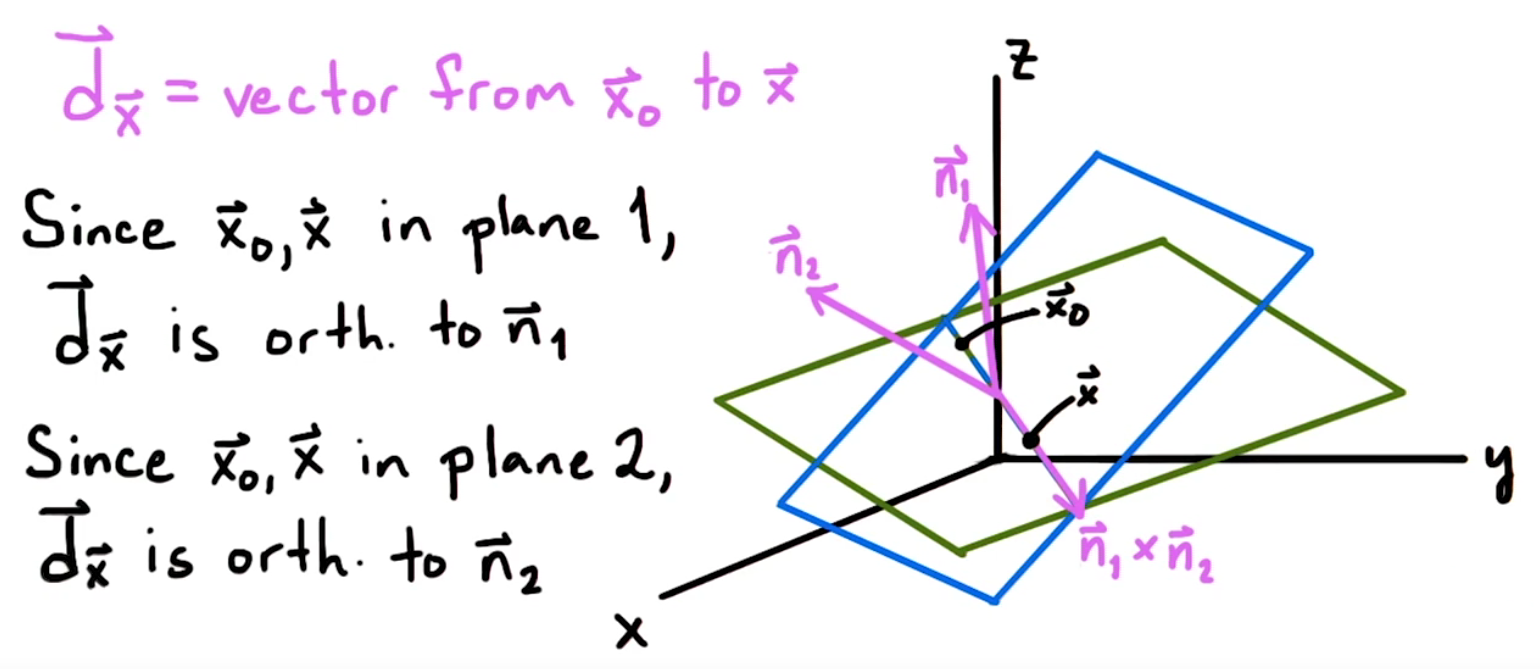 d⃗ₓ⃗ = vector from x⃗₀ to x⃗
Since x⃗₀, x⃗ in plane 1,
d⃗ₓ⃗ is orth. to n⃗₁
Since x⃗₀, x⃗ in plane 2,
d⃗ₓ⃗ is orth. to n⃗₂
z
n⃗₁
n⃗₂
x⃗₀
x⃗
y
n⃗₁ × n⃗₂
x